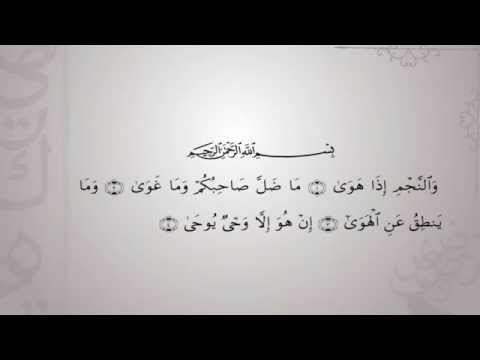 بسم الله الرحمن الرحيم
وَٱلنَّجْمِ إِذَا هَوَىٰ ۝١ مَا ضَلَّ صَاحِبُكُمْ وَمَا غَوَىٰ ۝٢ وَمَا
يَنطِقُ عَنِ ٱلْهَوَىٰٓ ۝٣ إِنْ هُوَ إِلَّا وَحْىٌ يُوحَىٰ ۝٤